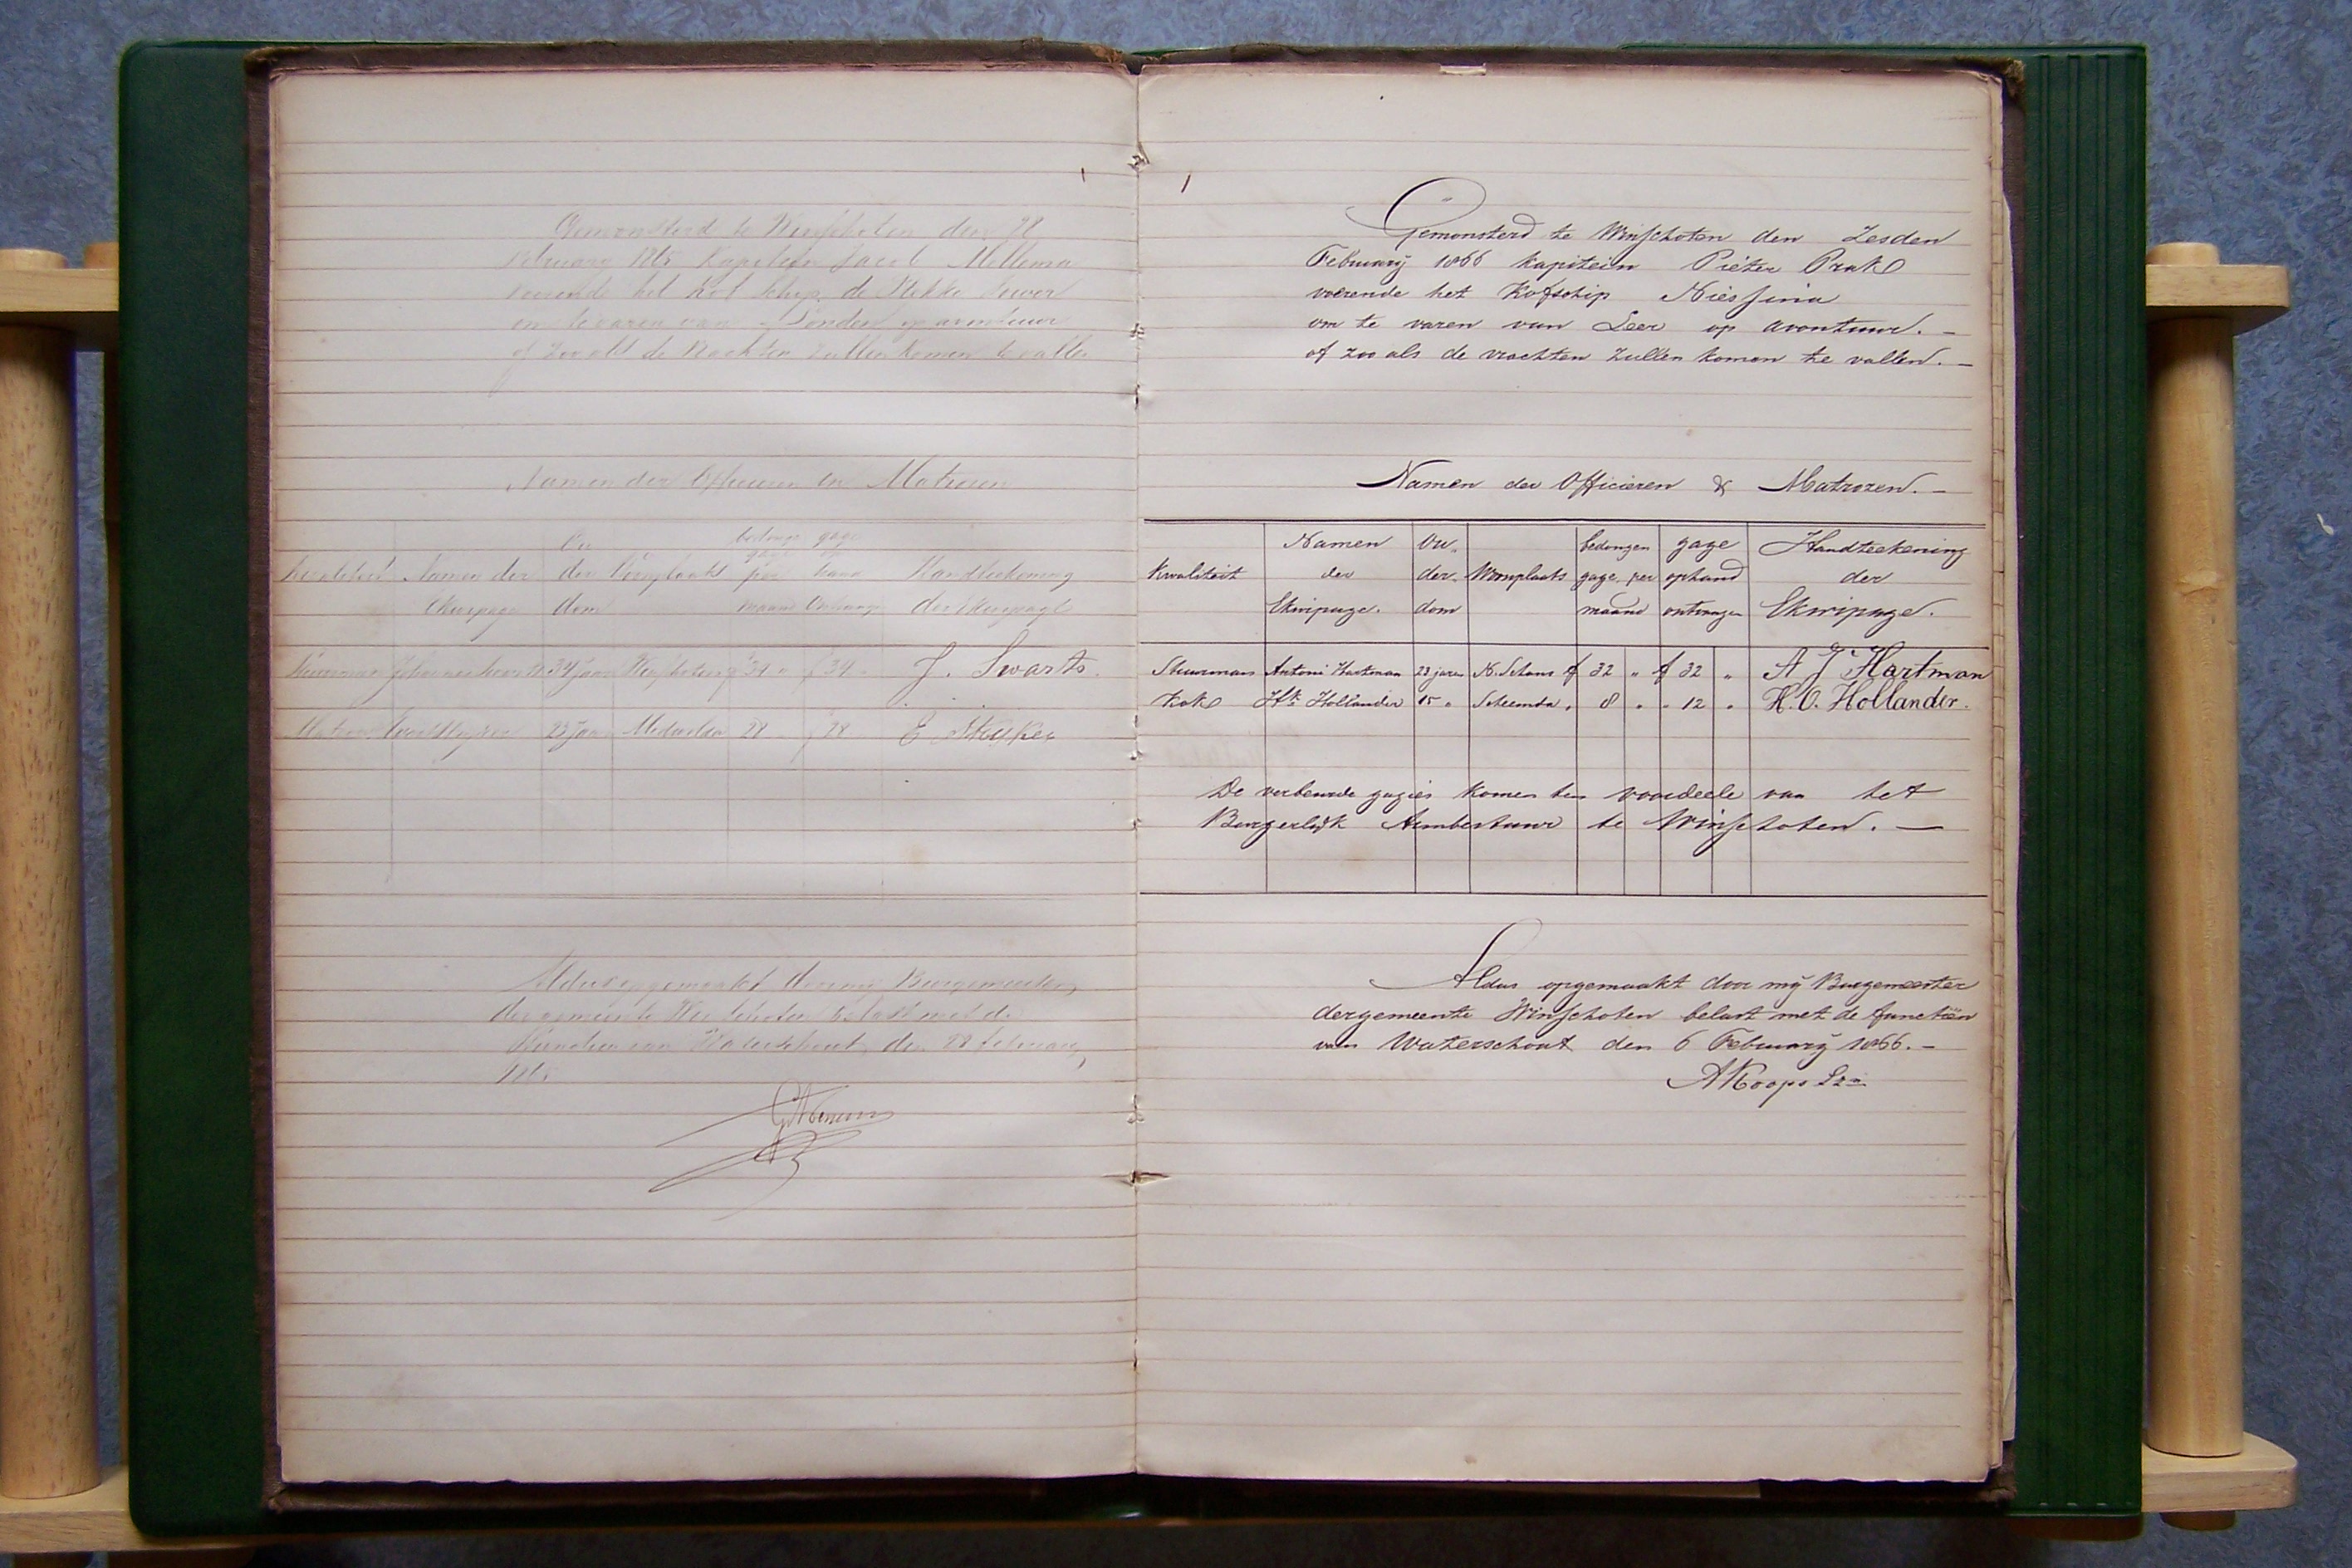 Gemonsterd te Winschoten den 28
February 1865 Kapitein Jacob Mellema
voerende het Kof schip de
om te varen van Londen op avontuur
of zoo als de vrachten zullen komen te vallen
Namen der Officieren en Matrozen
Kwaliteit Namen der Ekwipage Ou der dom Woonplaats bedongen gage per maand gage op hand ontvangen Handteekening der Ekwipage
Stuurman 34 jaar Winschoten f 34 " f 34 " J. Swarts.
Matroos 23 jaar Midwolda 28 " 28 " E Stuijker
Aldus opgemaakt door mij Burgemeester
der gemeente Winschoten belast met de
functien van Waterschout den 28 february
1865
1
Gemonsterd te Winschoten den Zesden
February 1866 kapitein Pieter Prak
voerende het Kofschip Niessina
om te varen van Leer op avontuur. -
of zoo als de vrachten zullen komen te vallen. -
Namen der Officieren & Matrozen. -
Kwaliteit Namen der Ekwipage. Ou- der- dom Woonplaats bedongen gage per maand gage op hand ontvangen Handteekening der Ekwipage.
Stuurman Antoni Hartman 23 jaren N. Schans f 32 " f 32 " A J Hartman
Kok Hk Hollander 15 " Scheemda " 8 " " 12 " H. O. Hollander.
De verbeurde gagies komen ten voordeele van het
Burgerlijk Armbestuur te Winschoten. —
Aldus opgemaakt door mij Burgemeester
der gemeente Winschoten belast met de functiën
van Waterschout den 6 February 1866. -
AKoops Szn